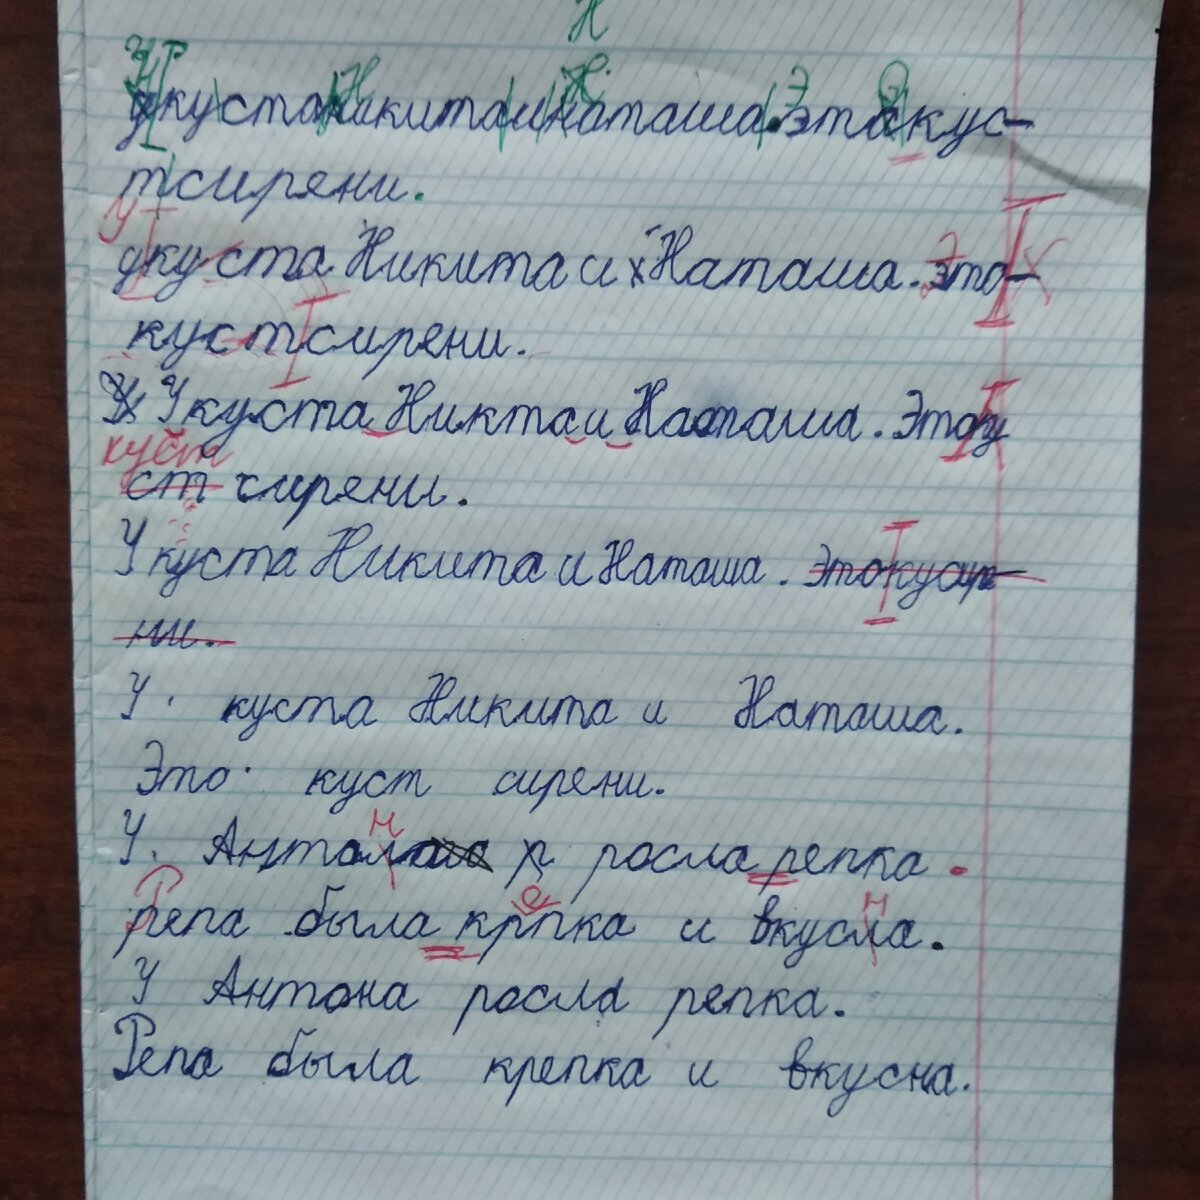 Н
укуста никита и наташа. Это кус-
тсирени.
укуста Никита и Наташа. Это-
куст сирени.
У куста Никта и Наташа. Это
куст
ст сирени.
У куста Никита и Наташа. Это
ни.
У куста Никита и Наташа.
Это куст сирени.
У. Антона росла репка.
Репа была крпка и вкусла.
У Антона росла репка.
Репа была крепка и вкусна.